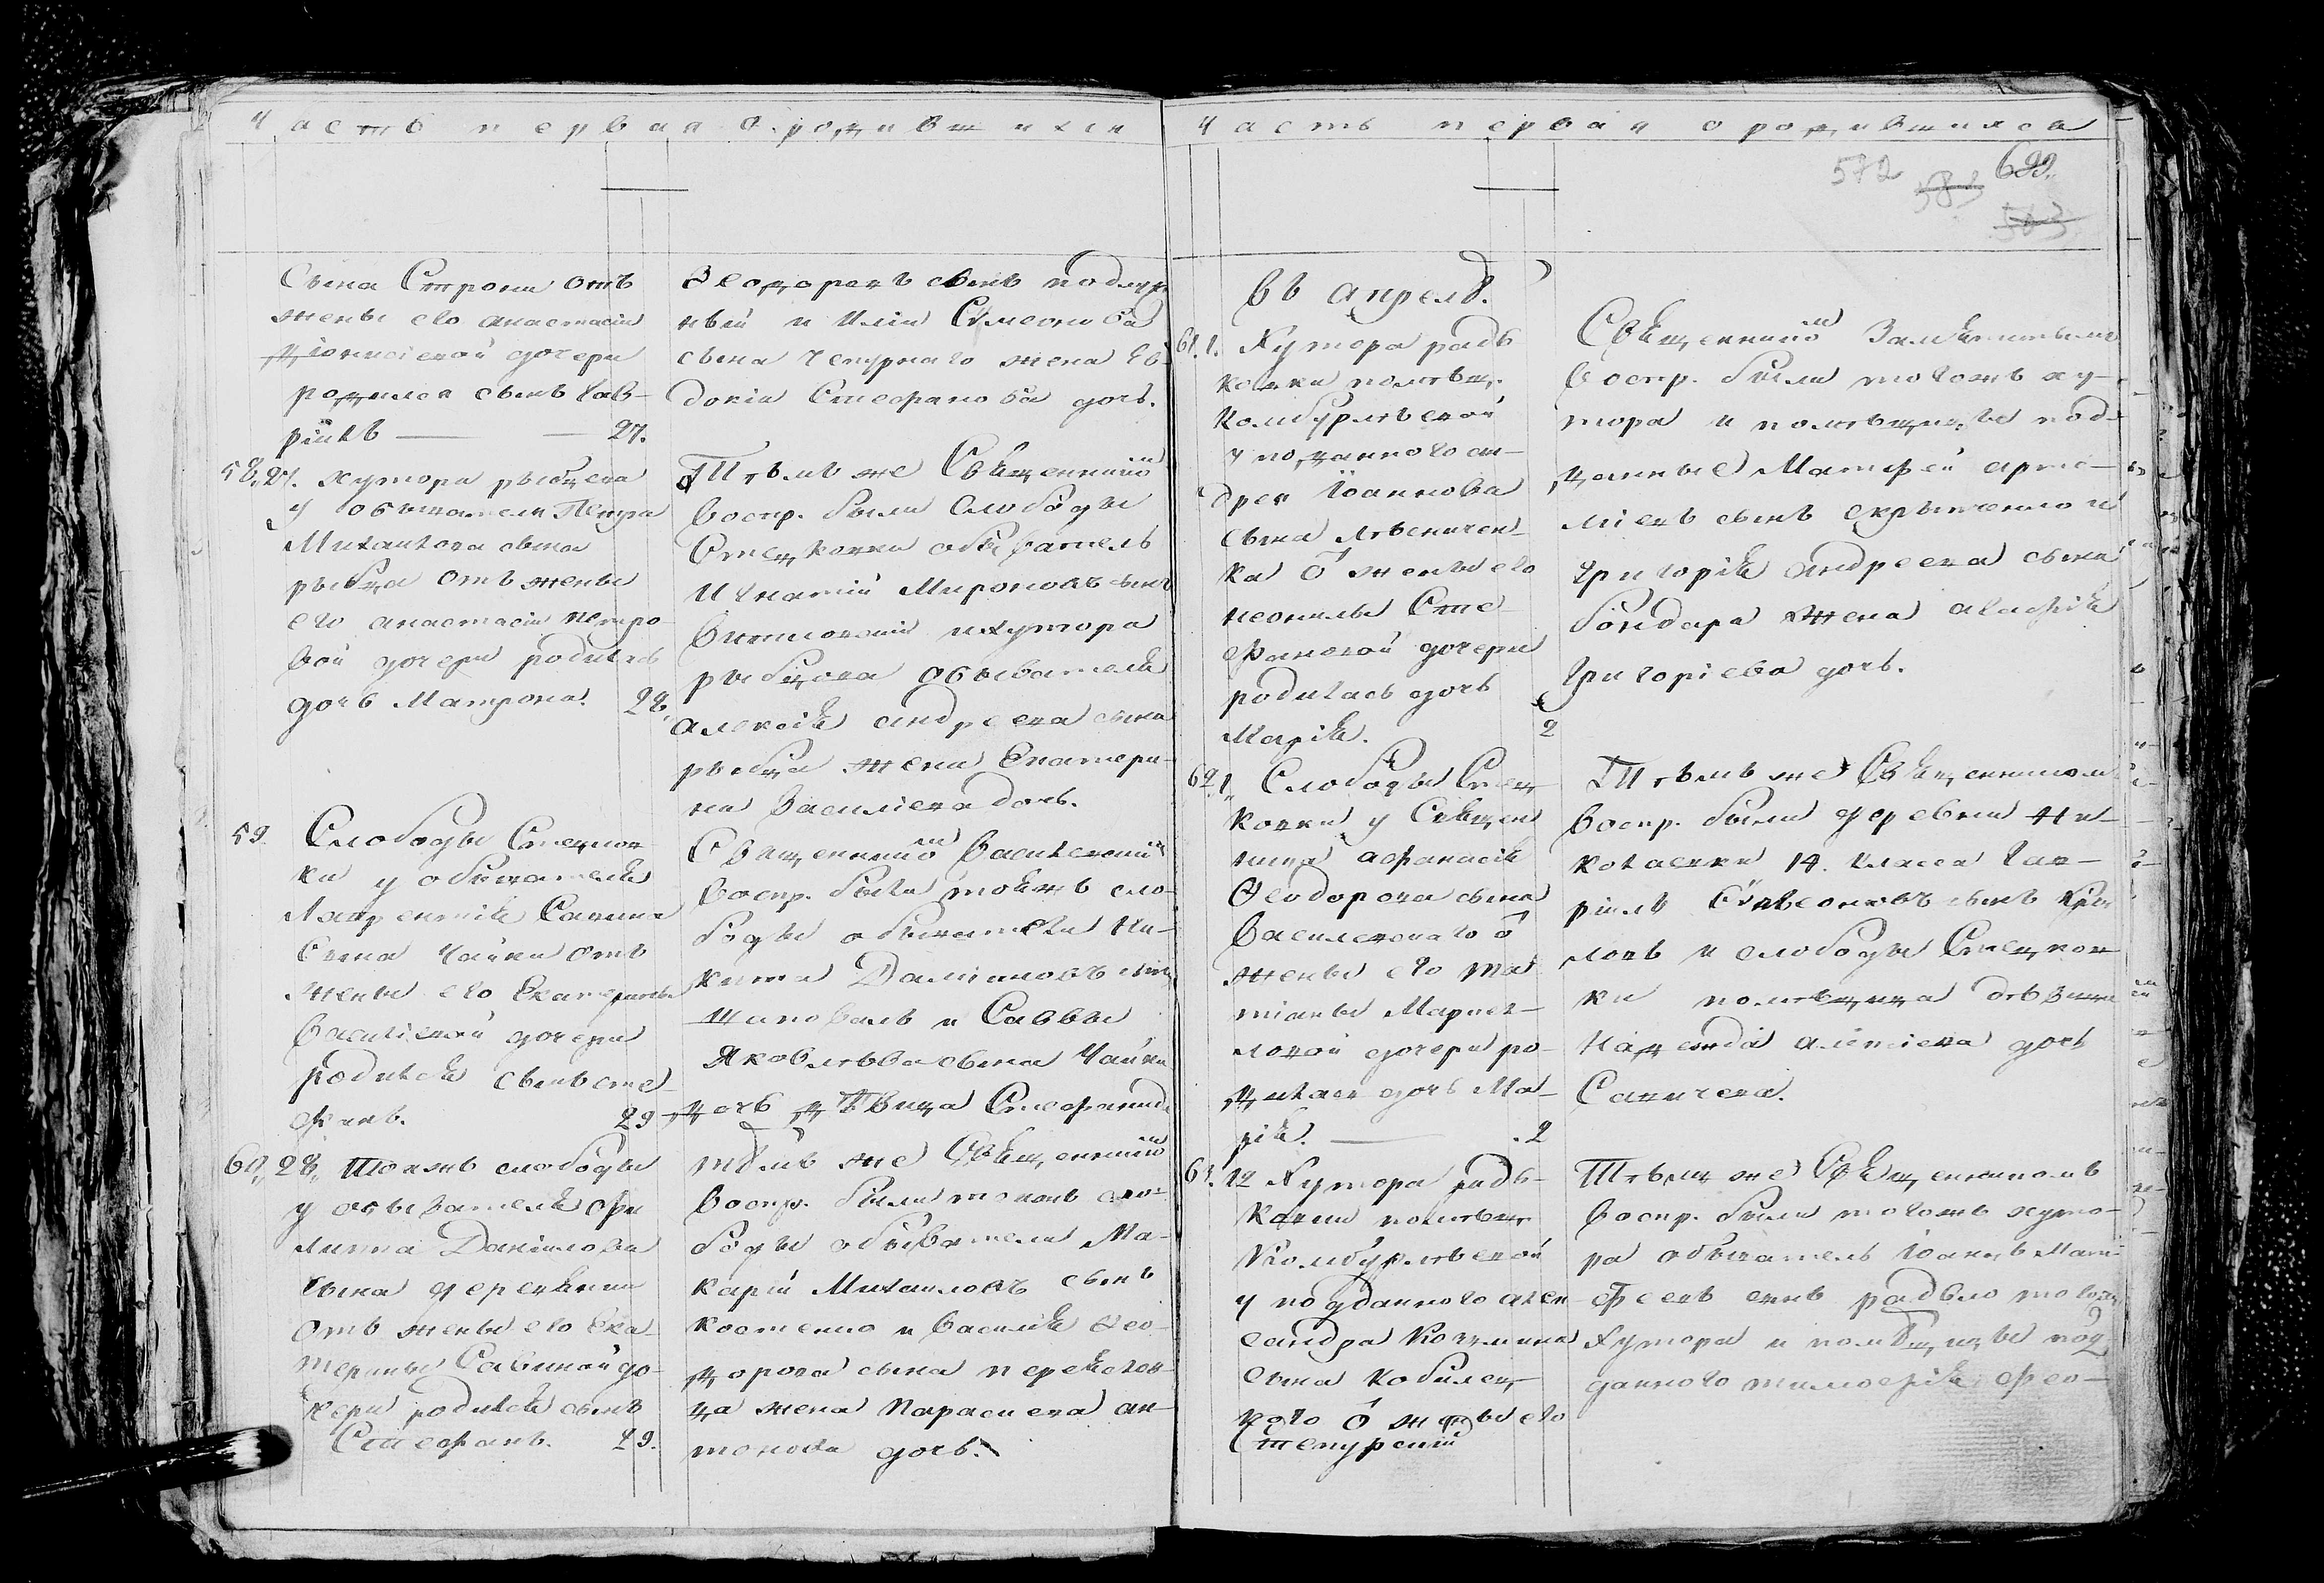 Часть первая о родившихся
Сына Строки отъ
жены его Анастасіи
Діонисіевой дочери
родился сынъ Гав-
ріилъ — — 27.
58. 27. хутора рыбцева
у обывателя Петра
Михаилова сына
рыбца отъ жены
его Анастасіи петро
вой дочери родилась
дочь Матрона. 28.
59. Слободы Стецков
ки у обывателя
Лаврентія Савина
Сына Чайки отъ
жены его Екатерины
Василіевой дочери
родился сынъ Сте
фанъ. 29
60. 28. тояжъ слободы
у обывателя Фи
липпа Даніилова
сына
отъ жены его Ека
терины Савиной до-
чери родился сынъ
Стефанъ. 29.
Ѳеодоровъ сынъ
и Иліи Симеонова
сына Чепурнаго жена Ев-
докія Стефанова дочь.
Тѣмъ же Священникомъ
воспр. были Слободы
Стецковки обыватель
Игнатій Мироновъ сынъ
и хутора
рыбцова обывателя
Алексія Андреева сына
рыбца жена Екатери-
на Василіева дочь.
Священникомъ Василевскимъ
воспр. были тояжъ сло
боды обыватели Ни-
кита Даміановъ сынъ
Шаповалъ и Саввы
Яковлѣва сына Чайки
дочь дѣвица Стефанида
тѣмъ же Священникомъ
воспр. были тояжъ сло-
боды обыватели Ма-
карій Михаиловъ сынъ
Костенко и Василія Ѳео-
дорова сына
жена Параскева ан-
тонова дочь.
Часть первая о родившихся
572 583 699.
563
Въ Апрелѣ.
61. 1. Хутора радь
ковки помѣщ.
Комбурлѣевой
у подданного ан-
дрея Іоаннова
сына
ка ѿ жены его
неонилы Сте
фановой дочери
родилась дочь
Марія. 2
62. 1. Слободы Стец
ковки у Священ
ника Афанасія
Ѳеодорова сына
Василевскаго ѿ
жены его Та
тіаны
ловой дочери ро-
дилась дочь Ма-
рія. — 2
63. 12 Хутора радь-
ковки помѣщ
Комбурлѣевой
у подданного Алек
сандра Козмина
сына Кобилец-
кого ѿ жены его
Священникомъ
воспр. были тогожъ ху-
тора и помѣщицы под-
данные Матфей арте-
міевъ сынъ и
Григорія Андреева сына
бондаря жена Агафія
Григоріева дочь.
Тѣмъ же Священникомъ
воспр. были деревни Ни-
колаевки 14. класса Гав-
ріилъ Симеоновъ сынъ
ловъ и слободы Стецков
ки помѣщица дѣвица
Надежда Алексіева дочь
Савичева.
Тѣмъ же Священникомъ
воспр. были тогожъ хуто-
ра обыватель Іоаннъ Мат-
феевъ сынъ радько тогожъ
Хутора и помѣщицы под
данного тимофея Фео-